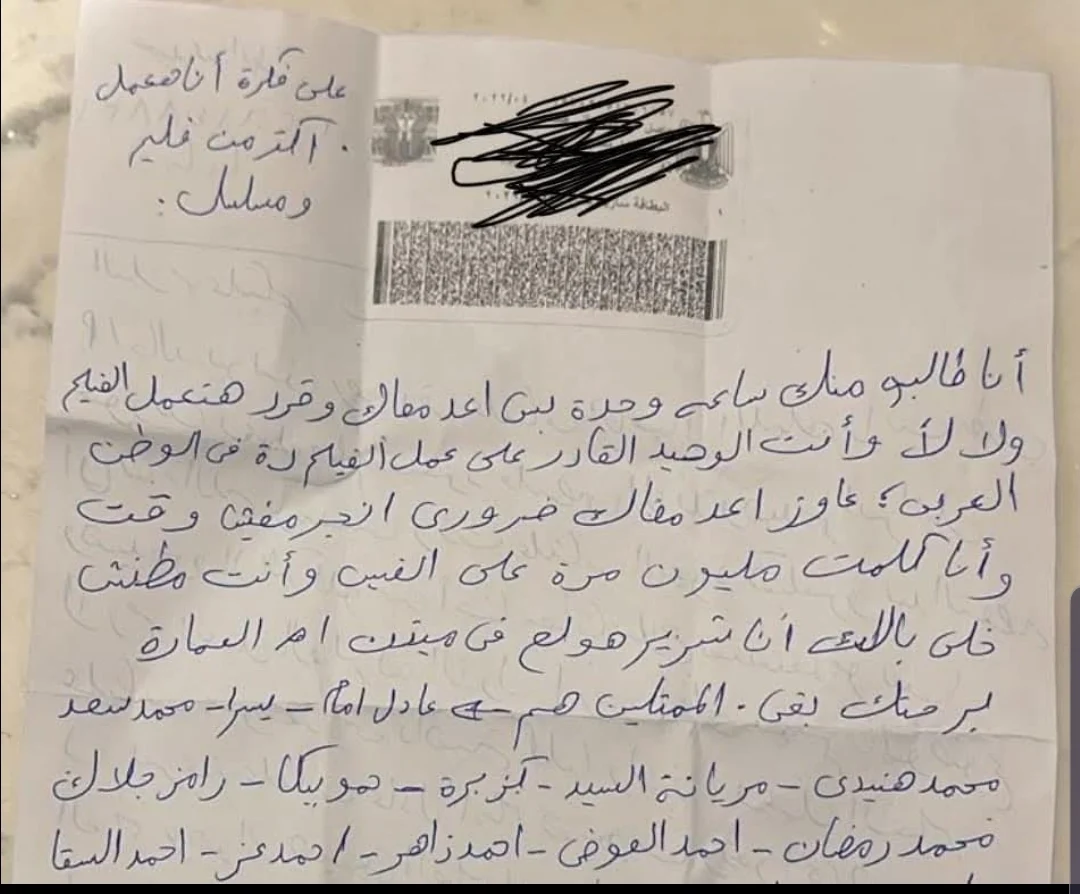 على فكرة أنا هعمل
أكتر من فليم
ومسلسل :
٢٠٢٢/٠٤
البطاقة سارية
أنا طالبو منك ساعه وحدة بس اعد معاك وقرر هتعمل الفيلم
ولا لأ وأنت الوحيد القادر على عمل الفيلم ده فى الوطن
العربى؛ عاوز اعد معاك ضرورى انجر مفيش وقت
وأنا كلمت مليون مرة على الفيس وأنت مطنش
خلى بالك أنا شرير هولع فى ميتين ام العمارة
برحتك بقى . الممثلين هم عادل امام - يسرا - محمد سعد
محمد هنيدى - مريانة السيد - كزبرة - حموبيكا - رامز جلال
محمد رمضان - احمد العوضى - احمد زاهر - احمد عز - احمد السقا